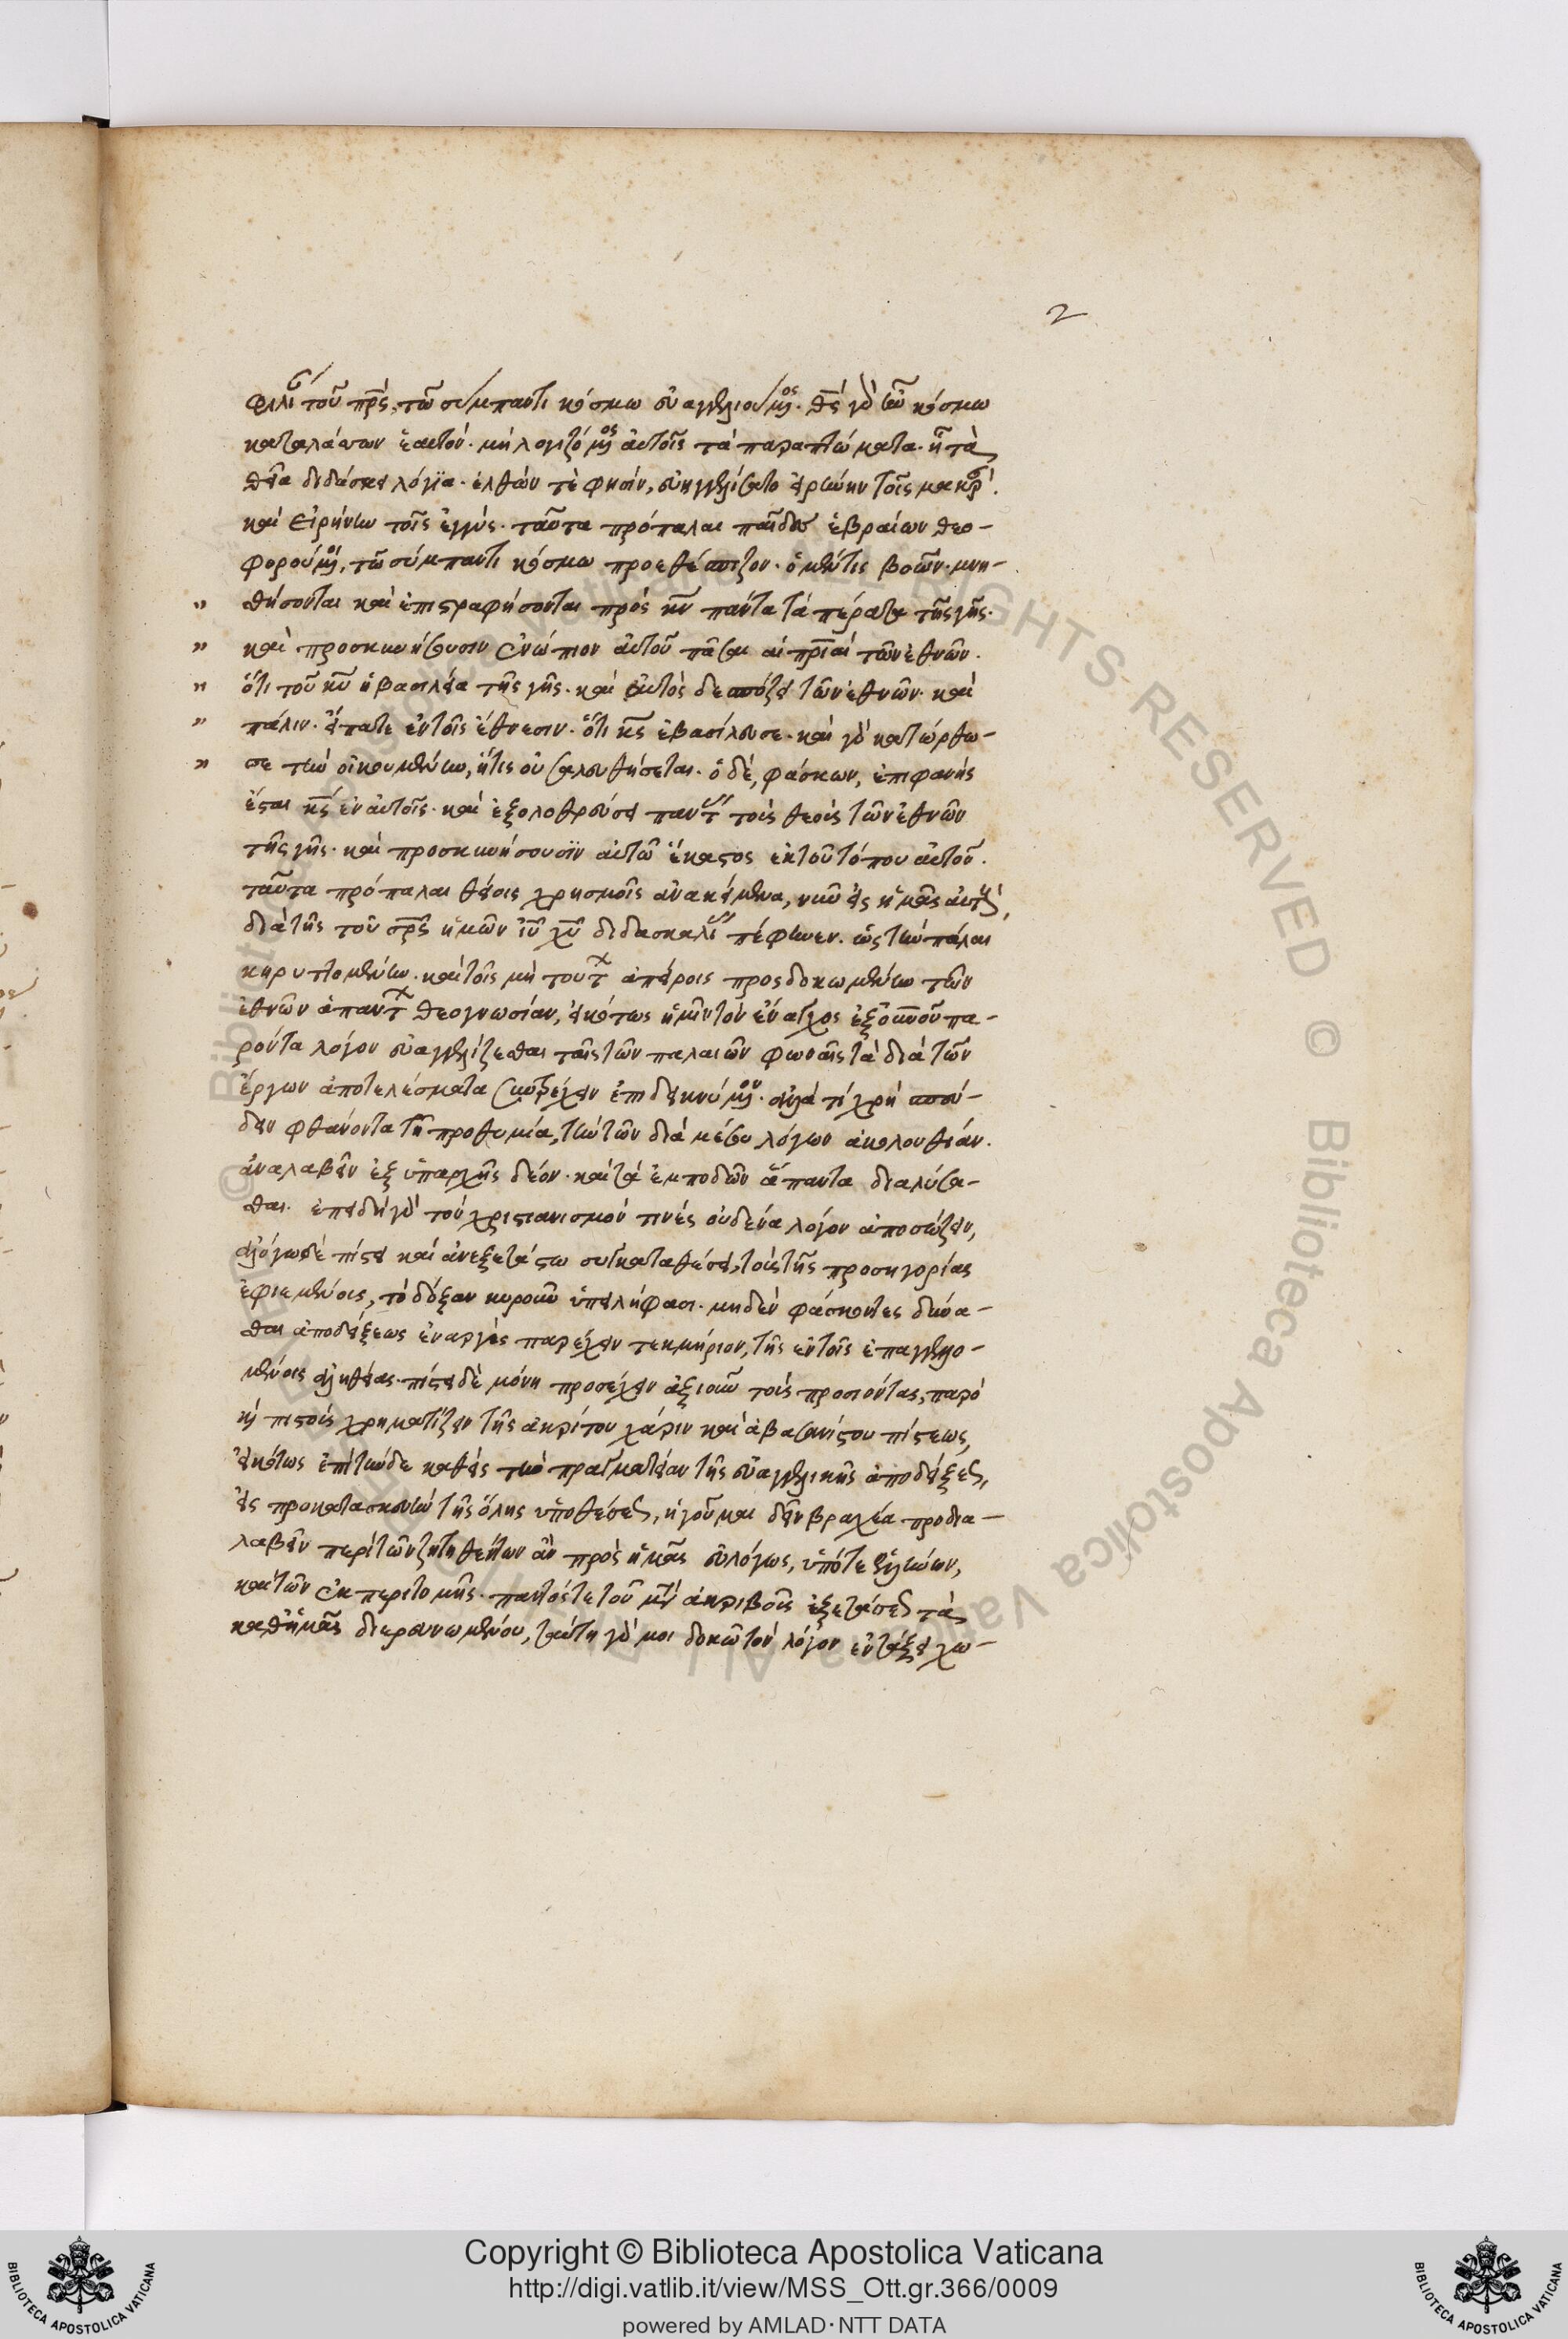 2
φιλίαν τοῦ πρς, τῶ σύμπαντι κόσμω εὐαγγελιούμενος. θς γὰρ ἦν κόσμω
καταλάσσων ἑαυτόν. μὴ λογιζόμενος αὐτοῖς τὰ παραπτώματα. ἧ τὰ
θεῖα διδάσκει λόγϊα. ἐλθών τὲ φησὶν, εὐηγγελίσατο εἰρήνην τοῖς μακρὰν.
καὶ εἰρήνην τοῖς ἐγγύς. ταῦτα πρόπαλαι παῖδες ἑβραίων θεο-
φορούμενοι, τῶ σύμπαντι κόσμω προεθέσπιζον. ὁ μέν τις βοῶν. μνη-
" θήσονται καὶ ἐπιστραφήσονται πρὸς κν πάντα τὰ πέρατα τῆς γῆς.
" καὶ προσκυνήσουσιν ἐνώπιον αὐτοῦ πᾶσαι αἱ πριαὶ τῶν ἐθνῶν.
" ὅτι τοῦ κυ ἡ βασιλεία τῆς γῆς. καὶ αὐτὸς δεσπόζει τῶν ἐθνῶν. καὶ
" πάλιν. εἴπατε ἐν τοῖς ἔθνεσιν. ὅτι κς ἐβασίλευσε. καὶ γὰρ κατώρθω-
" σε τὴν οἰκουμένην, ἥτις οὐ σαλευθήσεται. ὁ δὲ, φάσκων, ἐπιφανὴς
ἔσται κς ἐν αὐτοῖς. καὶ ἐξολοθρεύσει πάντας τοὺς θεοὺς τῶν ἐθνῶν
τῆς γῆς. καὶ προσκυνήσουσϊν αὐτῶ ἕκαστος ἐκ τοῦ τόπου αὐτοῦ.
ταῦτα πρόπαλαι θείοις χρησμοῖς ἀνακείμενα, νῦν εἰς ἡμᾶς αὐτοὺς,
διὰ τῆς τοῦ σρς ἡμῶν ιυ χυ διδασκαλίας πέφηνεν. ὡς τὴν πάλαι
κηρυττομένην. καὶ τοῖς μὴ τούτων ἀπείροις προσδοκωμένην τῶν
ἐθνῶν ἁπάντων θεογνωσίαν, εἰκότως ἡμῖν τὸν ἔναγχος ἐξ οὐνοῦ πα-
ρόντα λόγον εὐαγγελίζεσθαι ταῖς τῶν παλαιῶν φωναῖς τὰ διὰ τῶν
ἔργων ἀποτελέσματα συντρέχειν ἐπιδεικνύμενον. ἀλλὰ τί χρὴ σπεύ-
δειν φθάνοντα τῆ προθυμία, τὴν τῶν διὰ μέσου λόγων ἀκολουθίαν.
ἀναλαβεῖν ἐξ ὑπαρχῆς δέον. καὶ τὰ ἐμποδῶν ἅπαντα διαλύσα-
σθαι. ἐπειδὴ γὰρ τὸν χριστιανισμόν τινὲς οὐδένα λόγον ἀποσώζειν,
ἀλόγω δὲ πίστει καὶ ἀνεξετάστω συγκαταθέσει, τοὺς τῆς προσηγορίας
ἐφιεμένους, τὸ δόξαν κυροῦν ὑπειλήφασι. μηδὲν φάσκοντες δύνα-
σθαι ἀποδείξεως ἐναργὲς παρέχειν τεκμήριον, τῆς ἐν τοῖς ἐπαγγελλο-
μένοις ἀληθείας. πίστει δὲ μόνη προσέχειν ἀξιοῦν τοὺς προσιόντας, παρὸ
καὶ πιστοὺς χρηματίζειν τῆς ἀκρίτου χάριν καὶ ἀβασανίστου πίστεως,
εἰκότως ἐπὶ τήνδε καθεὶς τὴν πραγματείαν τῆς εὐαγγελικῆς ἀποδείξεως,
εἰς προκατασκευὴν τῆς ὅλης ὑποθέσεως, ἡγοῦμαι δεῖν βραχέα προδια-
λαβεῖν περὶ τῶν ζητηθέντων ἂν πρὸς ἡμᾶς εὐλόγως, ὑπό τε ἑλλήνων,
καὶ τῶν ἐκ περιτομῆς. παντός τε τοῦ μετὰ ἀκριβοῦς ἐξετάσεως τὰ
καθ' ἡμᾶς διερευνωμένου, ταύτη γὰρ μοι δοκῶ τὸν λόγον ἐν τάξει χω-
Copyright © Biblioteca Apostolica Vaticana
http://digi.vatlib.it/view/MSS_Ott.gr.366/0009
powered by AMLAD·NTT DATA